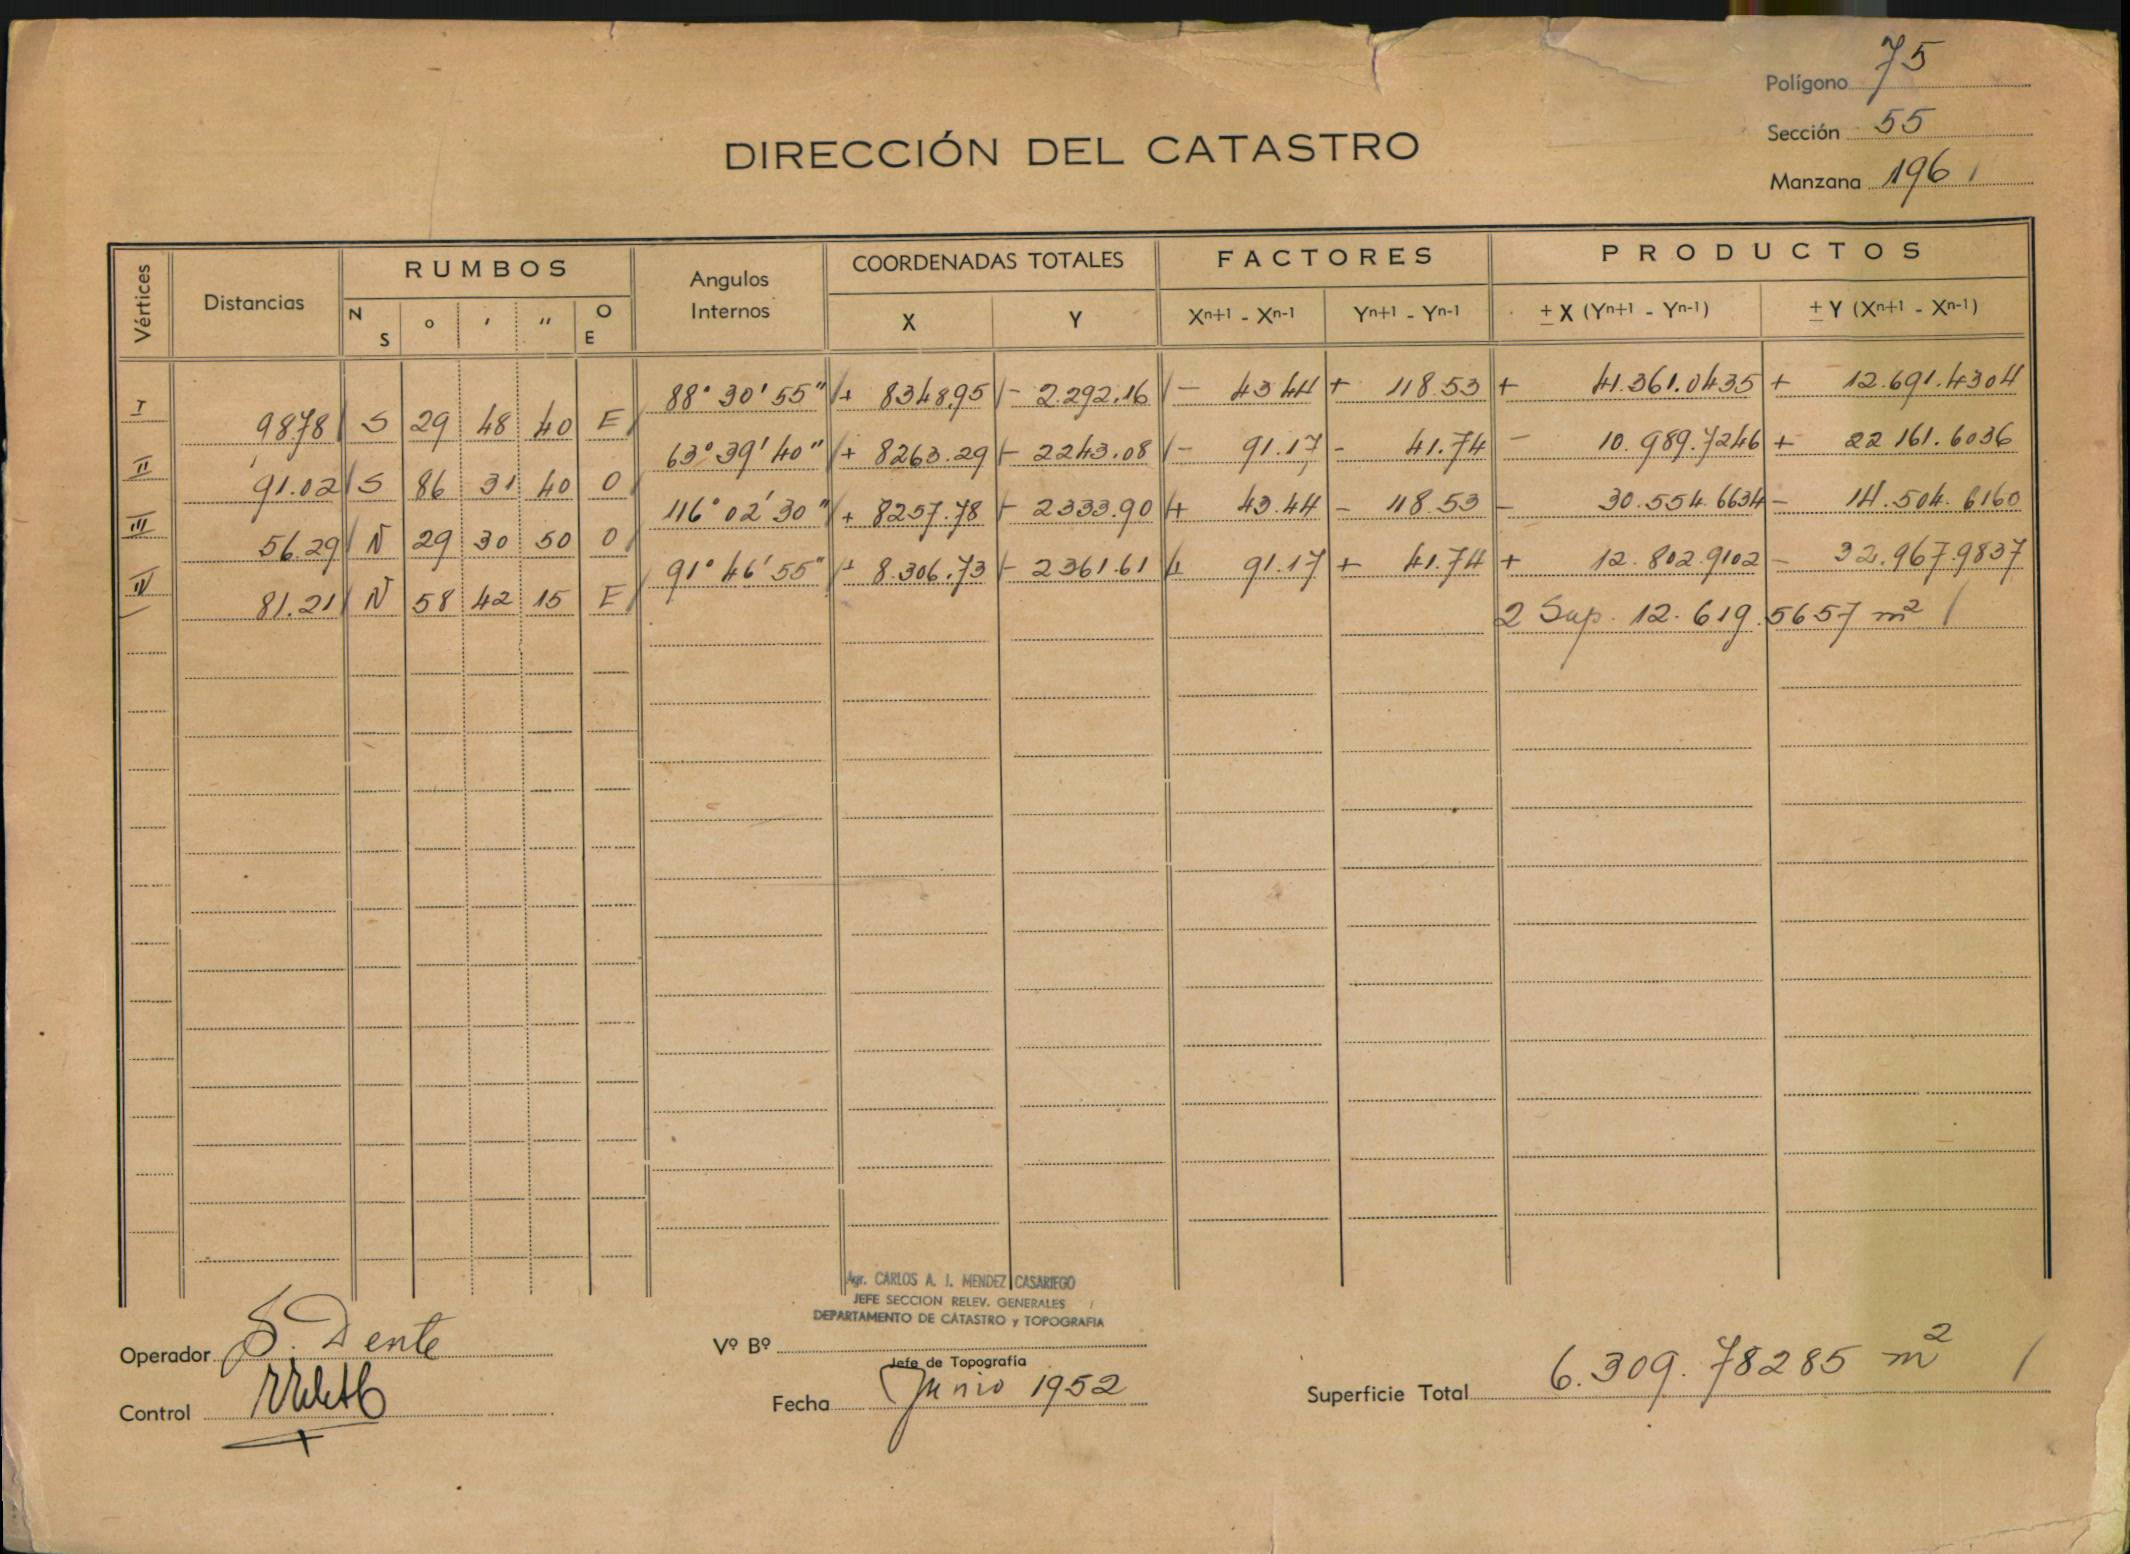 Polígono 75
Sección 55
Manzana 196
DIRECCIÓN DEL CATASTRO
Vértices Distancias RUMBOS Angulos Internos COORDENADAS TOTALES FACTORES PRODUCTOS
N S ° ' '' O E X Y Xn+1 - Xn-1 Yn+1 - Yn-1 ± X (Yn+1 - Yn-1) ± Y (Xn+1 - Xn-1)
I 88° 30' 55" + 8348,95 - 2.292,16 - 43 44 + 118.53 + 41.361.0435 + 12.691.4304
98.78 S 29 48 40 E
II 63° 39' 40" + 8263.29 - 2243.08 - 91.17 - 41.74 - 10.989.7246 + 22 161.6036
91.02 S 86 31 40 O
III 116° 02' 30" + 8257.78 - 2333.90 + 43.44 - 118.53 - 30.554.6634 - 14.504.6160
56.29 N 29 30 50 O
IV 91° 46' 55" + 8.306.73 - 2361.61 + 91.17 + 41.74 + 12.802.9102 - 32.967.9837
81.21 N 58 42 15 E
2 Sup. 12.619.5657 m²
Agr. CARLOS A. J. MENDEZ CASARIEGO
JEFE SECCION RELEV. GENERALES
DEPARTAMENTO DE CATASTRO y TOPOGRAFIA
Operador S. Dente
Vº Bº
Jefe de Topografía
Control
Fecha Junio 1952
Superficie Total 6.309.78285 m²